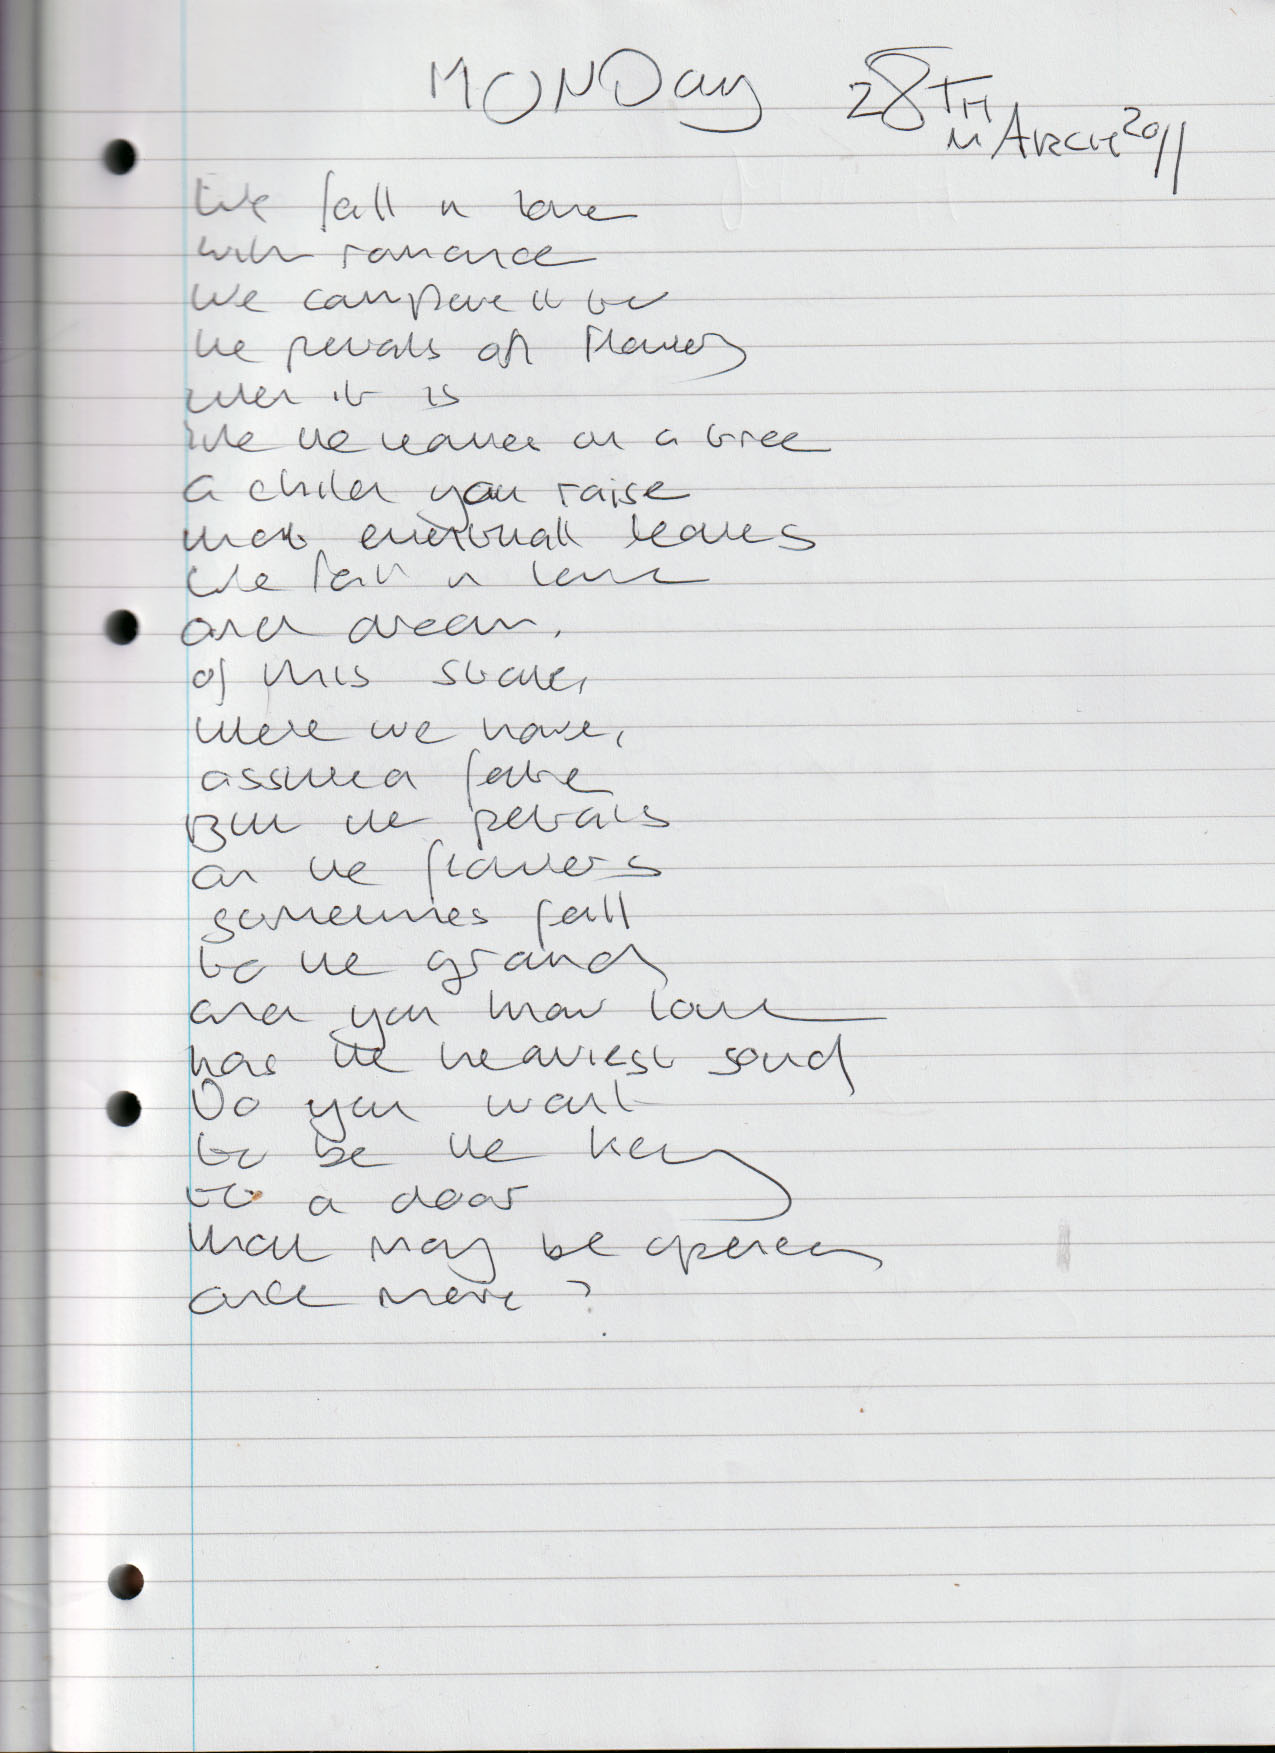 MONDay 28TH
MARCH 2011
We fall in love
with romance
We compare it to
the petals of flowers
when it is
like the leaves on a tree
a child you raise
that eventuall leaves
We fall in love
and dream,
of this state,
where we have,
assumed fate
But the petals
on the flowers
sometimes fall
to the ground
and you know love
has the heaviest sound
Do you want
to be the key
to a door
that may be opened
once more?